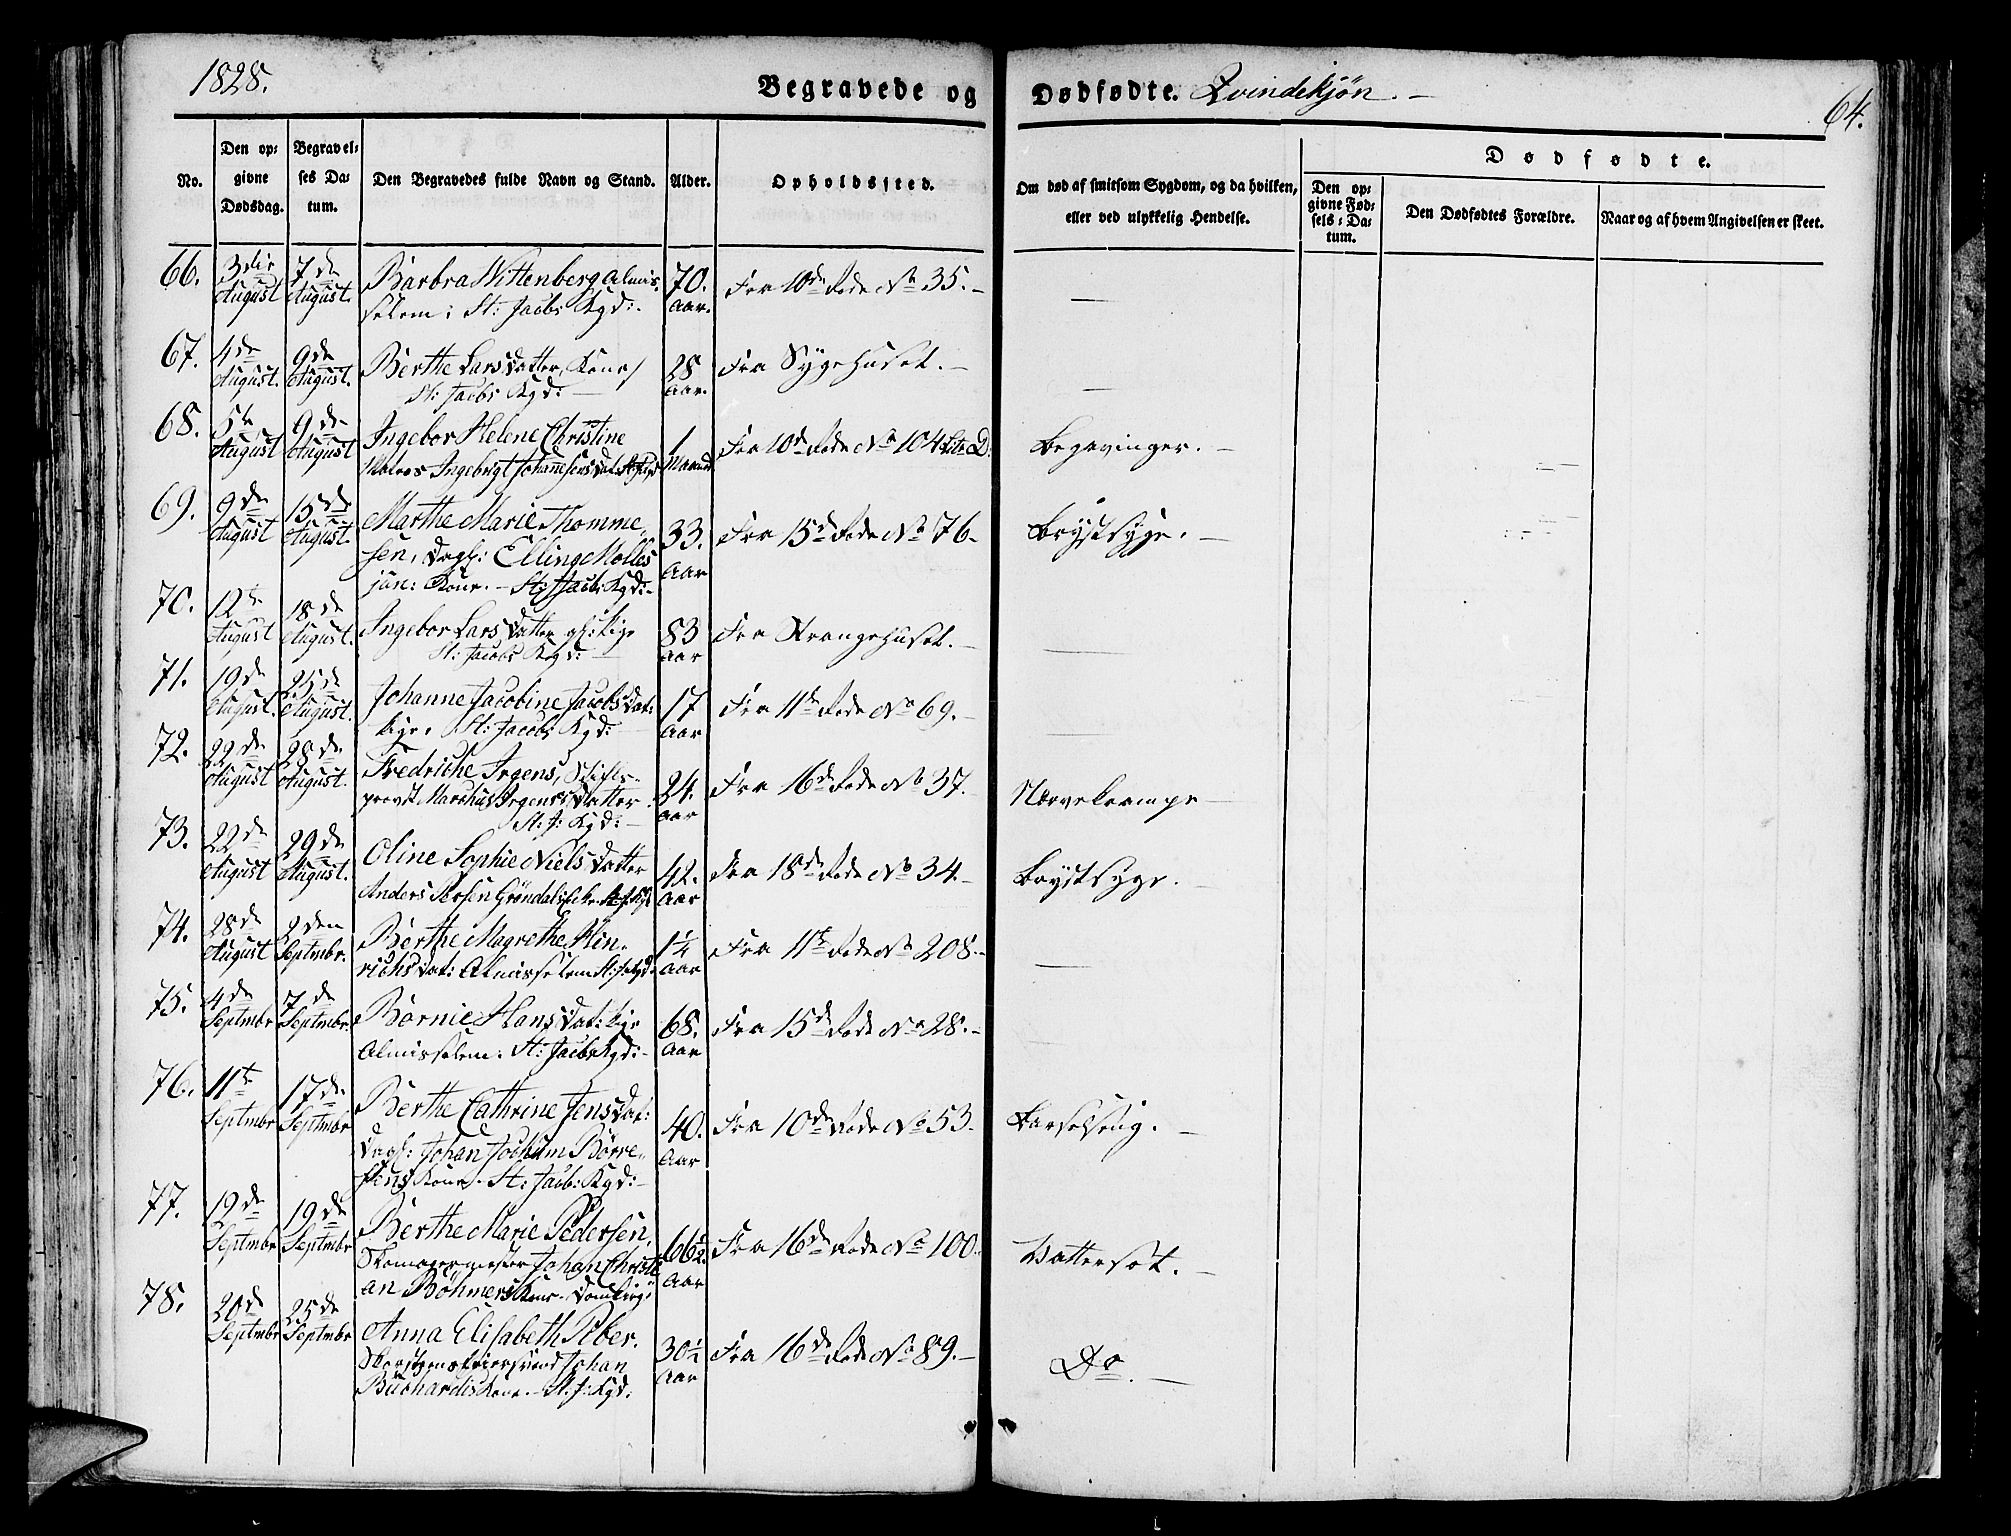 1828.
Begravede og Dødfødte. Qvindekjøn. —
64.
No.
Den op=
givne
Dødsdag.
Begravel=
ses Da=
tum.
Den Begravedes fulde Navn og Stand.
Alder.
Opholdssted.
Om død af smitsom Sygdom, og da hvilken,
eller ved ulykkelig Hendelse.
Dødfødte.
Den op=
givne Fød=
sels=Da=
tum.
Den Dødfødtes Forældre.
Naar og af hvem Angivelsen er skeet.
66. 3die August 7de August
Barbra Wittenberg Almis=
selem; St: Jacobs Kgd:.
70. Aar.
Fra 10de Rode No 35. —
67. 4de August. 9de August.
Berthe Larsdatter, Kone,
St: Jacobs Kgd: —
28 Aar.
Fra Sygehuset. —
68. 5te August 9de August
Ingebor Helene Christine
Ingebrigt Johannesens Dat:
1 Maaned
Fra 10de Rode No 104 Litr. D.
Begavinger. —
69. 9de August 15de August.
Marthe Marie Thomme,
sen, Dagl: Elling Molles
jøn: Kone. — St: Jacobs Kgd: —
33. Aar
Fra 15de Rode No 76 —
Brystsyge. —
70. 12te August 18de August.
Ingebor Lars Datter gl: Pige
St: Jacobs Kgd: —
83 Aar
Fra Strangehuset. —
71. 19de August. 25de August.
Johanne Jacobine Jacobs Dat:
Pige, St: Jacobs Kgd:
17 Aar
Fra 11te Rode No 69. —
72. 22de August 28de August.
Fredriche Irgens, Stifts=
provst Marchus Irgens's Datter
St: J: Kgd: —
24. Aar
Fra 16de Rode No 37.
Nervekrampe —
73. 22de August 29de August.
Oline Sophie Niels Datter
Anders Persen Grøndals Enke
42. Aar
Fra 18de Rode No 34. —
Brystsyge. —
74. 28de August 2den Septmbr.
Berthe Magrethe Hin=
richsdat: Almisselem St: J: Kgd:
1¼ Aar
Fra 11te Rode No 208. —
75. 4de Septmbr 7de Septmbr.
Børnie Hans Dat: Pige
Almisselem. St: Jacobs Kgd: —
68. Aar
Fra 15de Rode No 28. —
76. 11te Septmbr 17de Septmbr
Berthe Cathrine Jens Dat:
Dagl: Johan Jochum Børre=
sens Kone. St: Jacob: Kgd: —
40. Aar
Fra 10de Rode No 53. —
Barselseng. —
77. 19de Septmbr 19de Septmbr
Berthe Marie Pedersen,
Skomagermester Johan Christi
an Böhmers Kone. Domkirg:
66½ Aar
Fra 16de Rode No 100.
Vattersot. —
78. 20de Septmbr 25de Septmbr
Anna Elisabeth Piber.
Skorstensfeiersvend Johan
Buchardis Kone. — St: J: Kgd:
30½ Aar
Fra 16de Rode No 89. —
Do. —